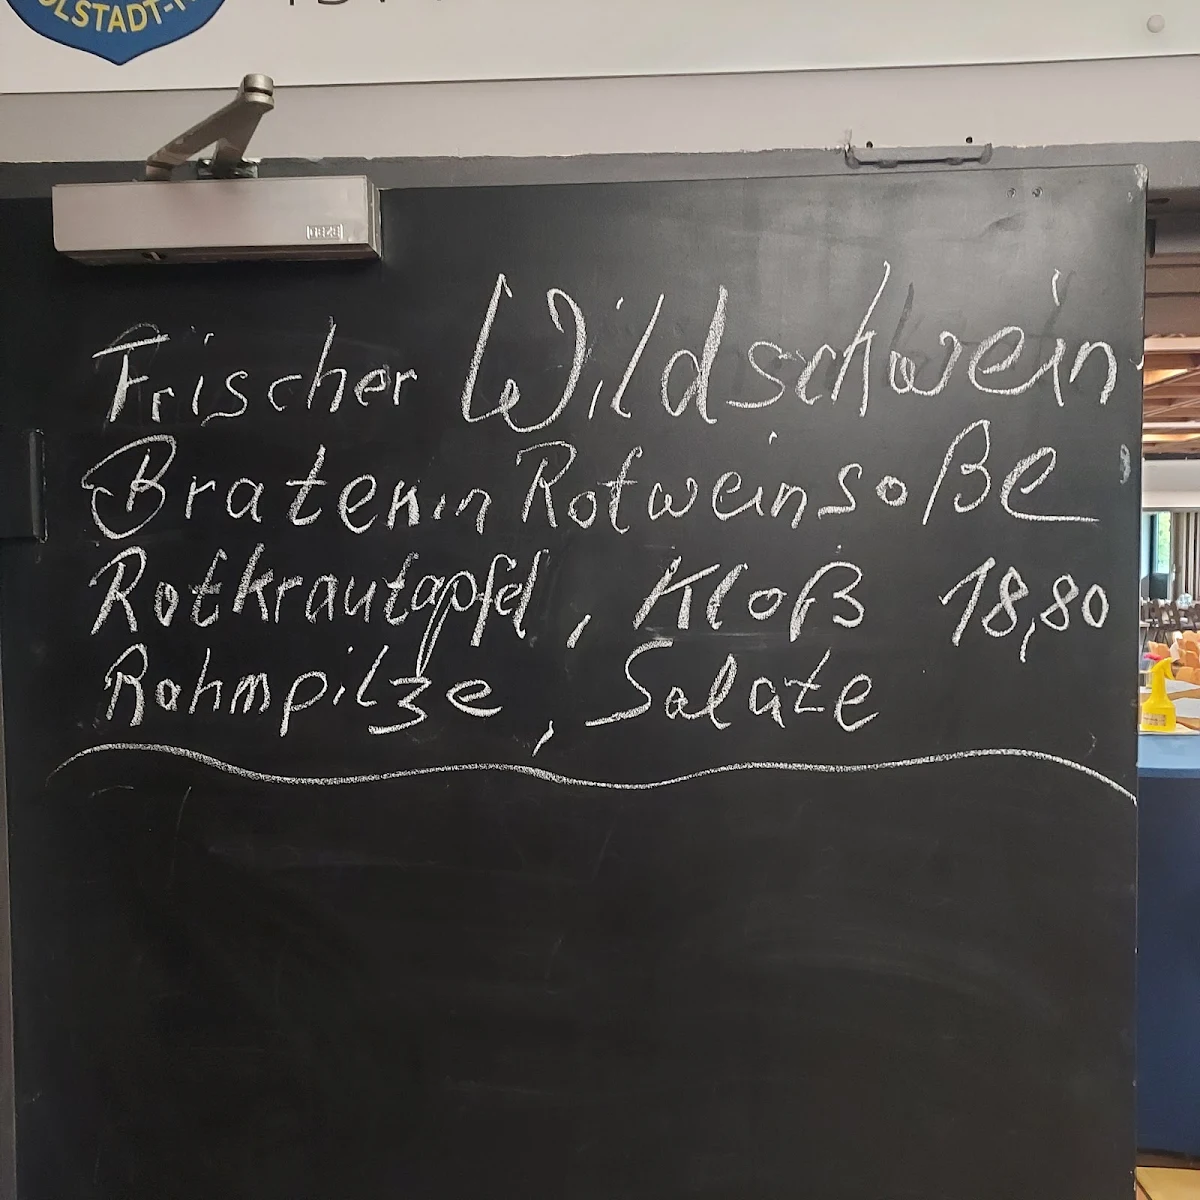 Frischer Wildschwein
Braten in Rotweinsoße
Rotkrautapfel, Kloß 18,80
Rahmpilze, Salate